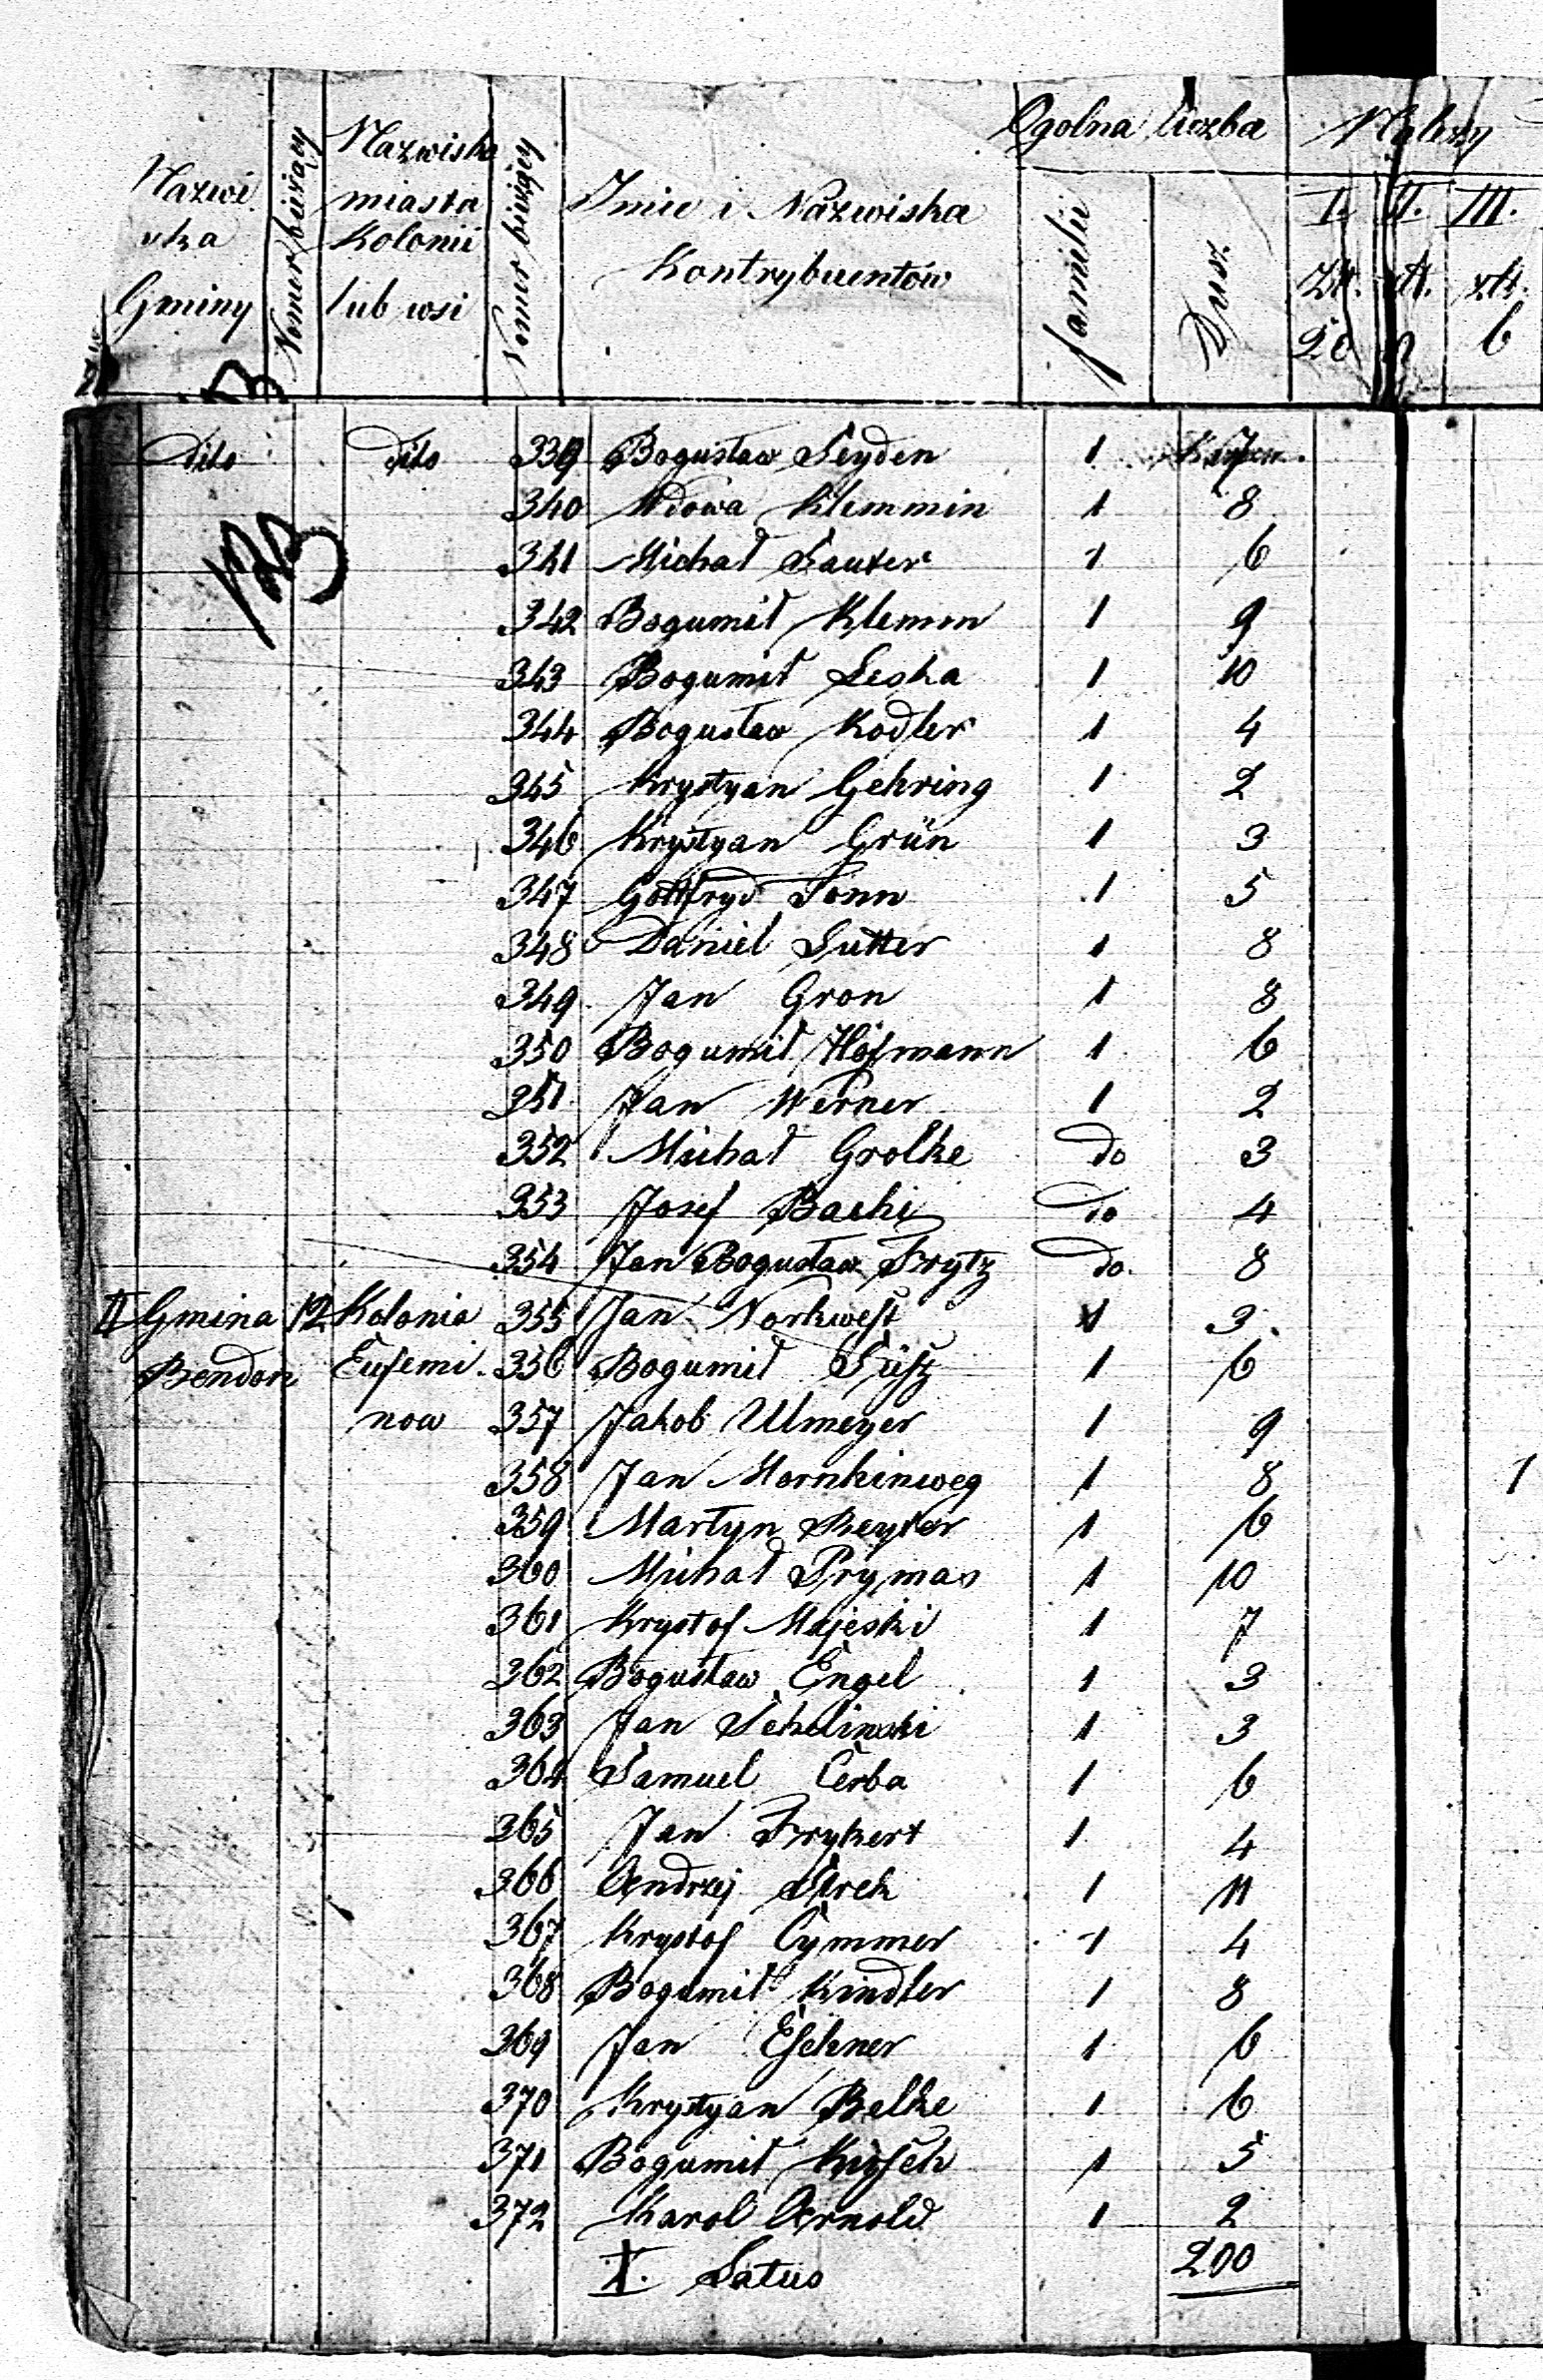 Ogolna liczba
Nazwiska Gminy
Nomer bieżący
Nazwiska miasta Kolonii lub wsi
Nomer bieżący
Imie i Nazwiska Kontrybuentów
familii
Dusz
I. II. III.
Zł. zł. złt.
20 6
dito dito 339 Bogusław Seyden 1 7
340 Wdowa Klemmin 1 8
341 Michał Sauter 1 6
342 Bogumił Klemm 1 9
343 Bogumił Leska 1 10
344 Bogusław Kodler 1 4
345 Krystyan Gehring 1 2
346 Krystyan Grün 1 3
347 Gottfryd Sonn 1 5
348 Daniel Sutter 1 8
349 Jan Gron 1 8
350 Bogumił Hofmann 1 6
351 Jan Werner 1 2
352 Michał Grolke do 3
353 Josef Bachi do 4
354 Jan Bogusław Frytz do. 8
II Gmina 12 Kolonia 355 Jan Norkwest 1 3
Bendon Eufemi. 356 Bogumił 1 6
now 357 Jakob Ulmeyer 1 9
358 Jan Mornhinweg 1 8 1
359 Martyn Reyter 1 6
360 Michał Prymas 1 10
361 Krystof Majeski 1 7
362 Bogusław Engel 1 3
363 Jan Schelinski 1 3
364 Samuel Cerba 1 6
365 Jan Frykert 1 4
366 Andrzej 1 11
367 Krystof Cymmer 1 4
368 Bogumił Kindler 1 8
369 Jan Eschner 1 6
370 Krystyan Belke 1 6
371 Bogumił Kirsch 1 5
372 Karol Arnold 1 2
X. Latus 200